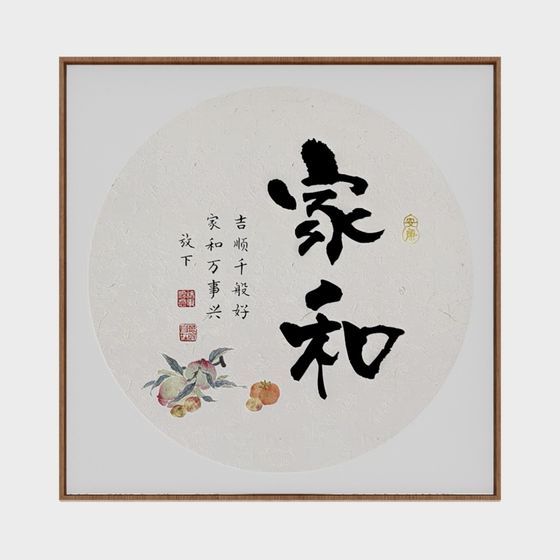 家和
吉顺千般好
家和万事兴
放下
安康